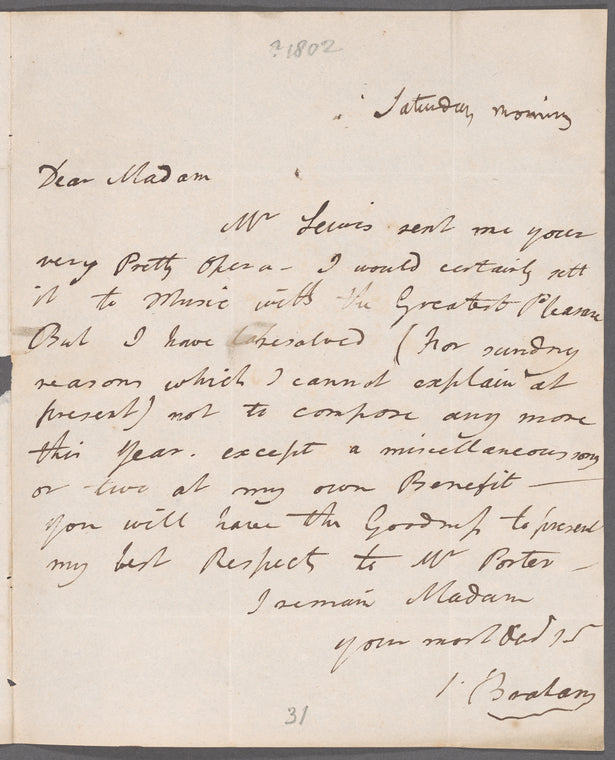 ?1802
Saturday morning
Dear Madam
Mr Lewis sent me your
very Pretty Opera - I would certainly sett
it to Music with the Greatest Pleasure
But I have resolved (for sundry
reasons which I cannot explain at
present) not to compose any more
this Year. except a miscellaneous song
or two at my own Benefit -
you will have the Goodness to present
my best Respects to Mr Porter -
I remain Madam
your most Obd
J. Braham
31